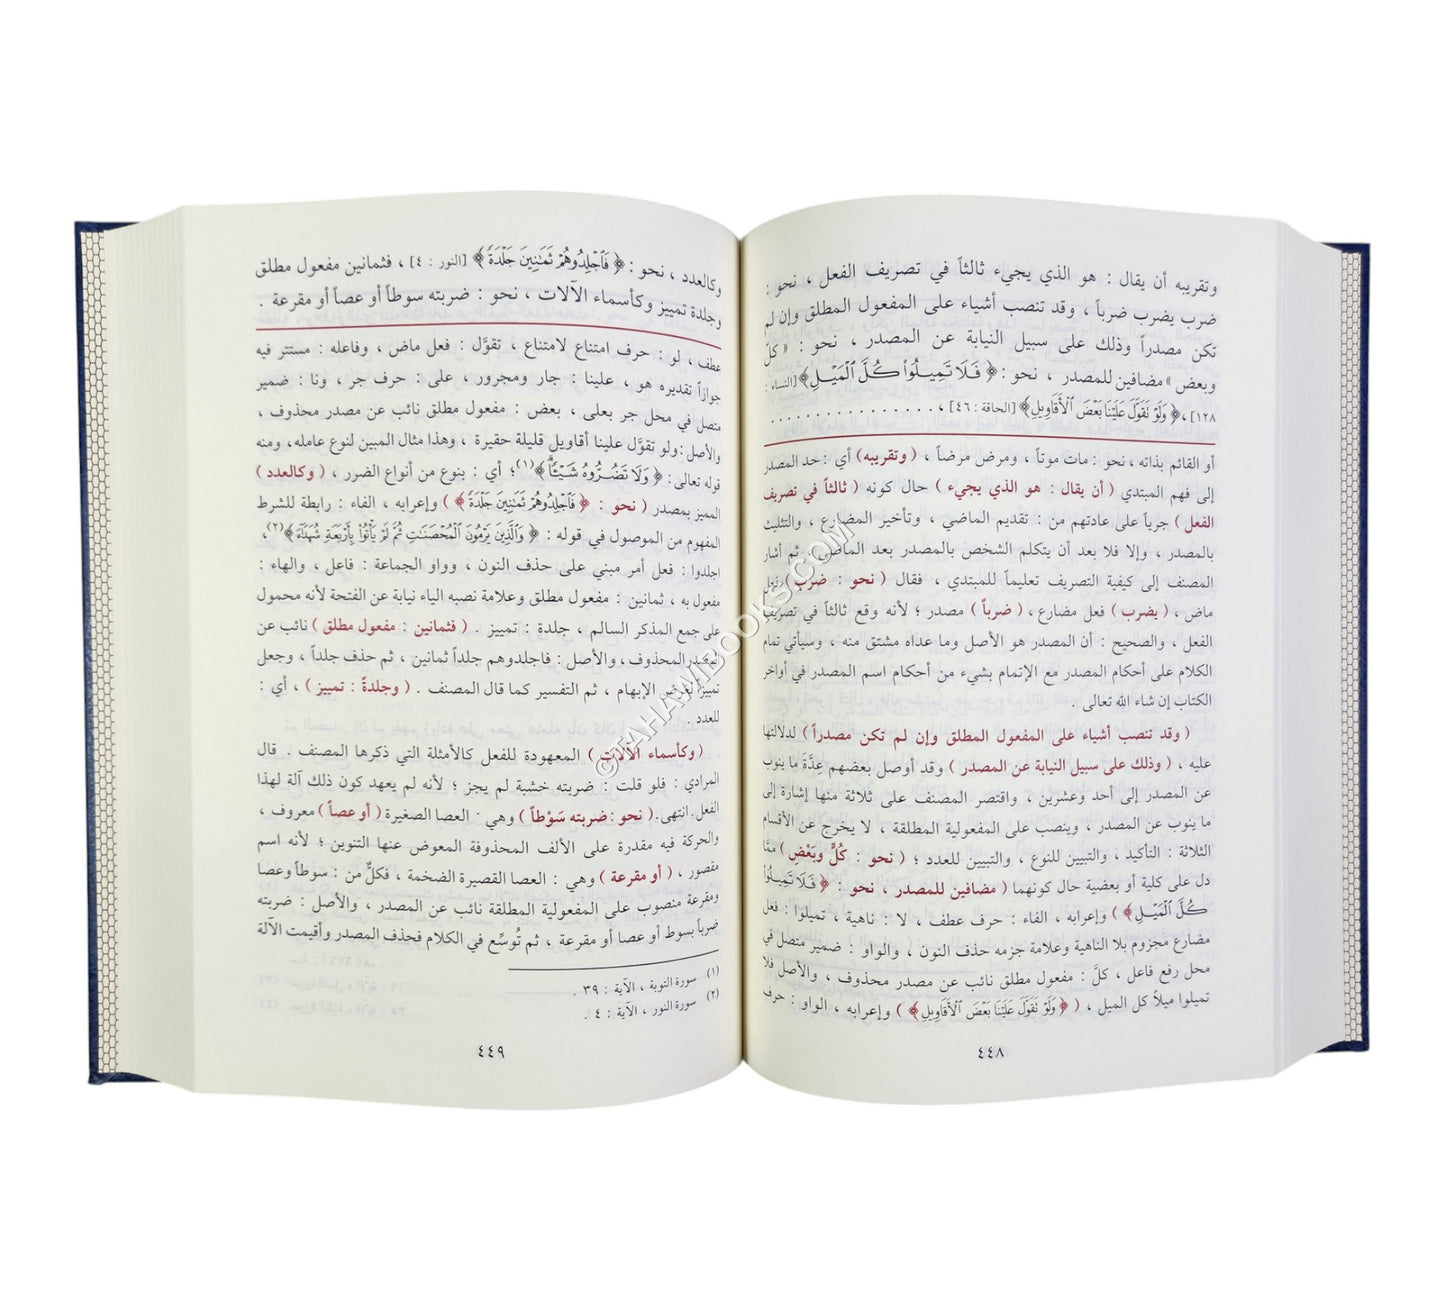 وتقريبه أن يقال : هو الذي يجيء ثالثاً في تصريف الفعل ، نحو :
ضرب يضرب ضرباً ، وقد تنصب أشياء على المفعول المطلق وإن لم
تكن مصدراً وذلك على سبيل النيابة عن المصدر ، نحو : « كلّ
وبعض » مضافين للمصدر ، نحو : ﴿ فَلَا تَمِيلُوا۟ كُلَّ ٱلْمَيْلِ ﴾ [النساء :
١٢٨] ، ﴿ وَلَوْ تَقَوَّلَ عَلَيْنَا بَعْضَ ٱلْأَقَاوِيلِ ﴾ [الحاقة : ٤٦] ، . . . . . . . . . . . . . . .
أو القائم بذاته ، نحو : مات موتاً ، ومرض مرضاً ، ( وتقريبه ) أي : حد المصدر
إلى فهم المبتدي ( أن يقال : هو الذي يجيء ) حال كونه ( ثالثاً في تصريف
الفعل ) جرياً على عادتهم من : تقديم الماضي ، وتأخير المضارع ، والتثليث
بالمصدر ، وإلا فلا بعد أن يتكلم الشخص بالمصدر بعد الماضي ثم أشار
المصنف إلى كيفية التصريف تعليماً للمبتدي ، فقال ( نحو : ضرب ) فعل
ماض ، ( يضرب ) فعل مضارع ، ( ضرباً ) مصدر ؛ لأنه وقع ثالثاً في تصريف
الفعل ، والصحيح : أن المصدر هو الأصل وما عداه مشتق منه ، وسيأتي تمام
الكلام على أحكام المصدر مع الإتمام بشيء من أحكام اسم المصدر في أواخر
الكتاب إن شاء الله تعالى .
( وقد تنصب أشياء على المفعول المطلق وإن لم تكن مصدراً ) لدلالتها
عليه ، ( وذلك على سبيل النيابة عن المصدر ) وقد أوصل بعضهم عِدَّةَ ما ينوب
عن المصدر إلى أحد وعشرين ، واقتصر المصنف على ثلاثة منها إشارة إلى
ما ينوب عن المصدر ، وينصب على المفعولية المطلقة ، لا يخرج عن الأقسام
الثلاثة : التأكيد ، والتبيين للنوع ، والتبيين للعدد ؛ ( نحو : كُلٌّ وبَعْضٍ ) ممَّا
دل على كلية أو بعضية حال كونهما ( مضافين للمصدر ، نحو : ﴿ فَلَا تَمِيلُوا۟
كُلَّ ٱلْمَيْلِ ﴾ ) وإعرابه ، الفاء : حرف عطف ، لا : ناهية ، تميلوا : فعل
مضارع مجزوم بلا الناهية وعلامة جزمه حذف النون ، والواو : ضمير متصل في
محل رفع فاعل ، كلَّ : مفعول مطلق نائب عن مصدر محذوف ، والأصل فلا
تميلوا ميلاً كل الميل ، ( ﴿ وَلَوْ تَقَوَّلَ عَلَيْنَا بَعْضَ ٱلْأَقَاوِيلِ ﴾ ) وإعرابه ، الواو : حرف
٤٤٨
وكالعدد ، نحو : ﴿ فَٱجْلِدُوهُمْ ثَمَٰنِينَ جَلْدَةً ﴾ [النور : ٤] ، فثمانين مفعول مطلق
وجلدة تمييز وكأسماء الآلات ، نحو : ضربته سوطاً أو عصاً أو مقرعة .
عطف ، لو : حرف امتناع لامتناع ، تقوَّل : فعل ماض ، وفاعله : مستتر فيه
جوازاً تقديره هو ، علينا : جار ومجرور ، على : حرف جر ، ونا : ضمير
متصل في محل جر بعلى ، بعض : مفعول مطلق نائب عن مصدر محذوف ،
والأصل : ولو تقوَّل علينا أقاويل قليلة حقيرة ، وهذا مثال المبين لنوع عامله ، ومنه
قوله تعالى : ﴿ وَلَا تَضُرُّوهُ شَيْـًٔا ﴾(١) ؛ أي : بنوع من أنواع الضرر ، ( وكالعدد )
المميز بمصدر ( نحو : ﴿ فَٱجْلِدُوهُمْ ثَمَٰنِينَ جَلْدَةً ﴾ ) وإعرابه ، الفاء : رابطة للشرط
المفهوم من الموصول في قوله : ﴿ وَٱلَّذِينَ يَرْمُونَ ٱلْمُحْصَنَٰتِ ثُمَّ لَمْ يَأْتُوا۟ بِأَرْبَعَةِ شُهَدَآءَ ﴾(٢) ،
اجلدوا : فعل أمر مبني على حذف النون ، وواو الجماعة : فاعل ، والهاء :
مفعول به ، ثمانين : مفعول مطلق وعلامة نصبه الياء نيابة عن الفتحة لأنه محمول
على جمع المذكر السالم ، جلدة : تمييز . ( فثمانين : مفعول مطلق ) نائب عن
المصدر المحذوف ، والأصل : فاجلدوهم جلداً ثمانين ، ثم حذف جلداً ، وجعل
تمييزاً الإبهام ، ثم التفسير كما قال المصنف . ( وجلدةً : تمييز ) ، أي :
للعدد .
( وكأسماء الآلات ) المعهودة للفعل كالأمثلة التي ذكرها المصنف . قال
المرادي : فلو قلت : ضربته خشبة لم يجز ؛ لأنه لم يعهد كون ذلك آلة لهذا
الفعل . انتهى . ( نحو : ضربته سَوْطاً ) وهي : العصا الصغيرة ( أو عصاً ) معروف ،
والحركة فيه مقدرة على الألف المحذوفة المعوض عنها التنوين ؛ لأنه اسم
مقصور ، ( أو مقرعة ) وهي : العصا القصيرة الضخمة ، فكلٌّ من : سوطاً وعصا
ومقرعة منصوب على المفعولية المطلقة نائب عن المصدر ، والأصل : ضربته
ضرباً بسوط أو عصا أو مقرعة ، ثم تُوسِّع في الكلام فحذف المصدر وأقيمت الآلة
(١) سورة التوبة ، الآية : ٣٩ .
(٢) سورة النور ، الآية : ٤ .
٤٤٩
©TAHAWIBOOKS.COM